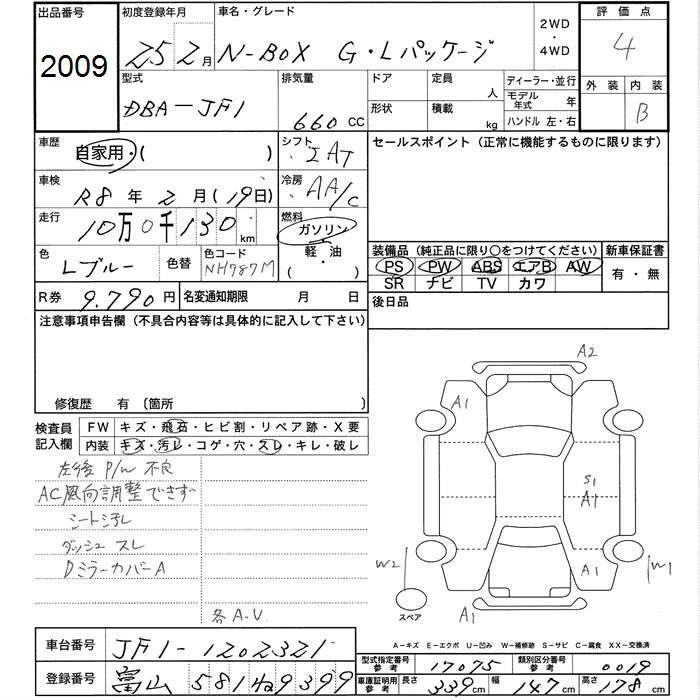 出品番号
2009
初度登録年月
25 2月
車名・グレード
N-BOX G・Lパッケージ
2WD
・
4WD
評価点
4
外装 内装
B
型式
DBA-JF1
排気量
660 CC
ドア
形状
定員 人
積載 kg
ディーラー・並行
モデル年式 年
ハンドル 左・右
車歴
自家用・( )
シフト
IAT
車検
R8年2月(19日)
冷房
AA/C
走行
10万0千130km
燃料
ガソリン
軽・油
( ・ )
色
Lブルー
色替
色コード
NH787M
R券 9.790円
名変通知期限 月 日
セールスポイント(正常に機能するものに限ります)
装備品(純正品に限り○をつけてください)
PS PW ABS エアB AW
SR ナビ TV カワ
新車保証書
有・無
後日品
注意事項申告欄(不具合内容等は具体的に記入して下さい)
修復歴 有(箇所
検査員
記入欄
FW キズ・飛石・ヒビ割・リペア跡・X要
内装 キズ・汚レ・コゲ・穴・スレ・キレ・破レ
左後 P/W 不良
AC風向調整できず
シート汚レ
ダッシュ スレ
DミラーカバーA
各A.U.
A2
A1
S1
A1
W2
A1
W1
スペア
A1
A-キズ E-エクボ U-凹み W-補修跡 S-サビ C-腐食 XX-交換済
車台番号 JF1-1202321
登録番号 富山 581 ね 9399
型式指定番号
参考
17075
類別区分番号
参考
0019
車庫証明用
参考
長さ 339cm 幅 147cm 高さ 178cm